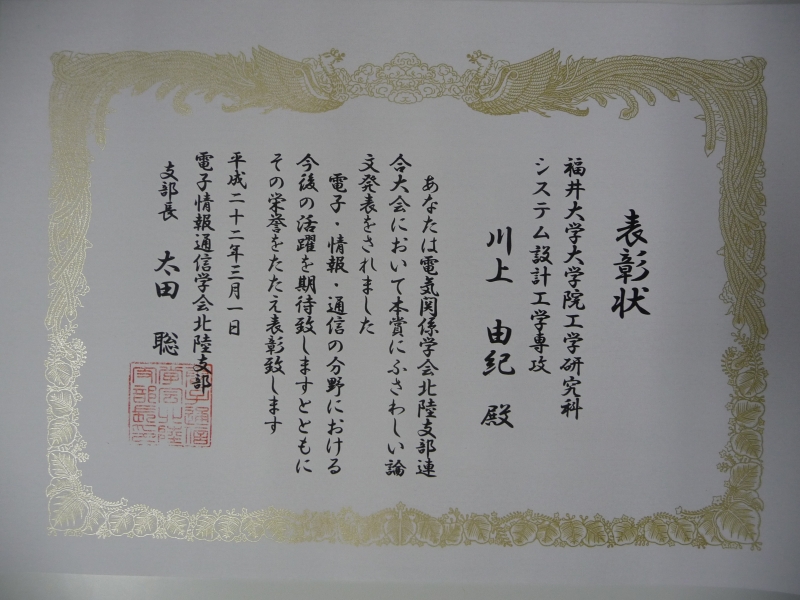 表彰状
福井大学大学院工学研究科
システム設計工学専攻
川上 由紀 殿
あなたは電気関係学会北陸支部連
合大会において本賞にふさわしい論
文発表をされました
電子・情報・通信の分野における
今後の活躍を期待致しますとともに
その栄誉をたたえ表彰致します
平成二十二年三月一日
電子情報通信学会北陸支部
支部長 太田 聡